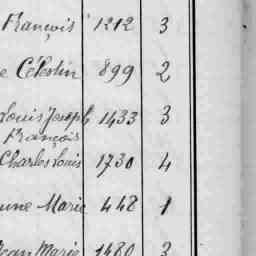 François 1212 3
e Célestin 899 2
Louis Joseph 1433 3
François
Charles Louis 1730 4
une Marie 448 1
Jean Marie 1480 3